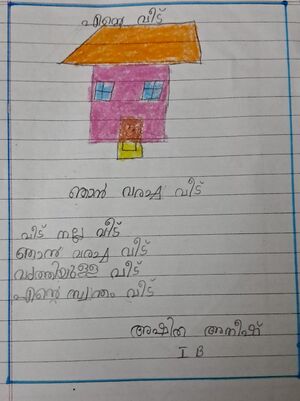 എന്റെ വീട്
ഞാൻ വരച്ച വീട്
വീട് നല്ല വീട്
ഞാൻ വരച്ച വീട്
വൃത്തിയുള്ള വീട്
എന്റെ സ്വന്തം വീട്
അഷിത അനീഷ്
I B